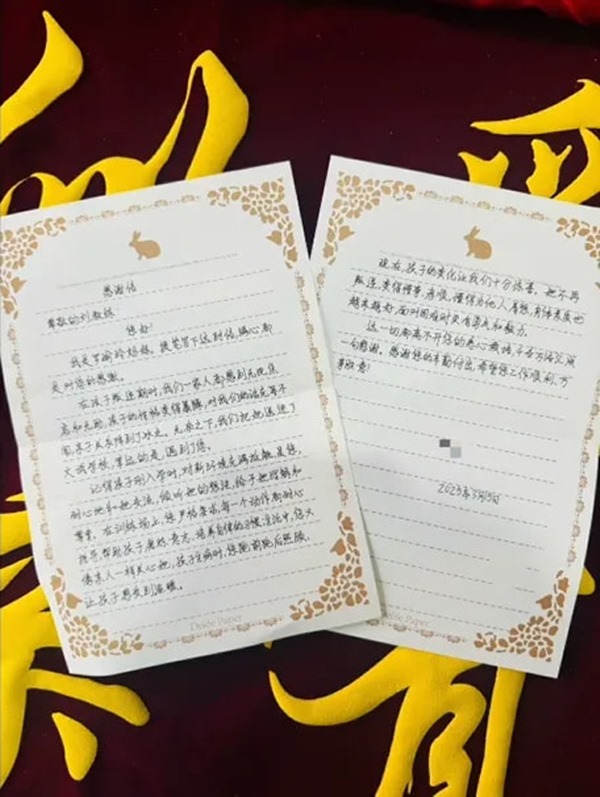 感谢信
尊敬的刘教练:
您好!
我是冒渝玲妈妈,提笔写下这封信,满心都
是对您的感激。
在孩子叛逆期时,我们一家人都感到无比焦
虑和无助,孩子的性格变得暴躁,对我们的话充耳不
闻,亲子关系降到了冰点。无奈之下,我们把她送进了
大成学校,幸运的是,遇到了您。
记得孩子刚入学时,对新环境充满抵触,是您,
耐心地和她交流,倾听她的想法,给予她理解和
尊重。在训练场上,您严格要求,每一个动作都耐心
指导,帮助孩子磨炼意志,培养自律的习惯;生活中,您又
像亲人一样关心她,孩子生病时,您跑前跑后照顾,
让孩子感受到温暖。
Deluxe Paper
现在,孩子的变化让我们十分惊喜,她不再
叛逆,变得懂事、孝顺,懂得为他人着想,身体素质也
越来越好,面对困难时更有勇气和毅力。
这一切都离不开您的悉心教导,千言万语汇成
一句感谢,感谢您的辛勤付出,希望您工作顺利,万
事胜意!
2025年3月5日